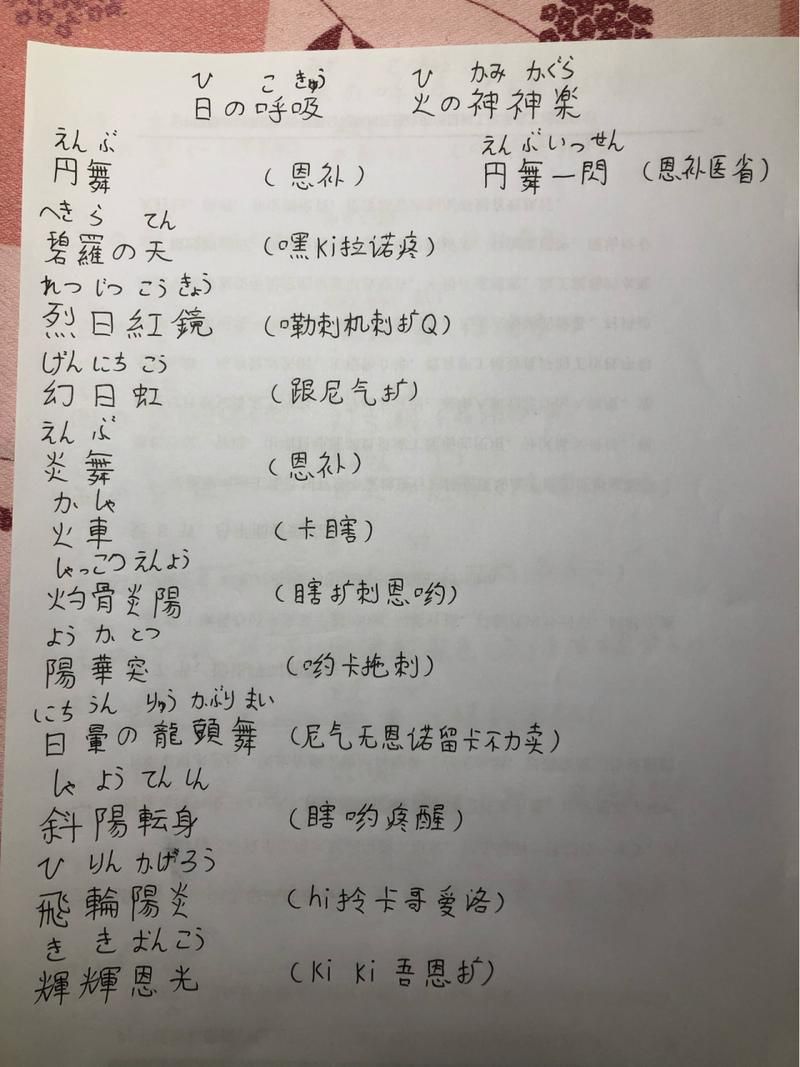 ひ こ きゅう ひ かみ かぐら
日の呼吸 火の神神楽
えん ぶ えん ぶ いっ せん
円舞 (恩补) 円舞一閃 (恩补医省)
へき ら てん
碧羅の天 (嘿Ki拉诺疼)
れつ じつ こう きょう
烈日紅鏡 (嘞刺机刺扩Q)
げん にち こう
幻日虹 (跟尼气扩)
えん ぶ
炎舞 (恩补)
か しゃ
火車 (卡瞎)
しゃっ こつ えん よう
灼骨炎陽 (瞎扩刺恩哟)
よう か とつ
陽華突 (哟卡拖刺)
にち うん りゅう かぶり まい
日暈の龍頭舞 (尼气无恩诺留卡不力卖)
しゃ よう てん しん
斜陽転身 (瞎哟疼醒)
ひ りん かげろう
飛輪陽炎 (hi拎卡哥爱洛)
き き おん こう
輝輝恩光 (Ki Ki 吾恩扩)